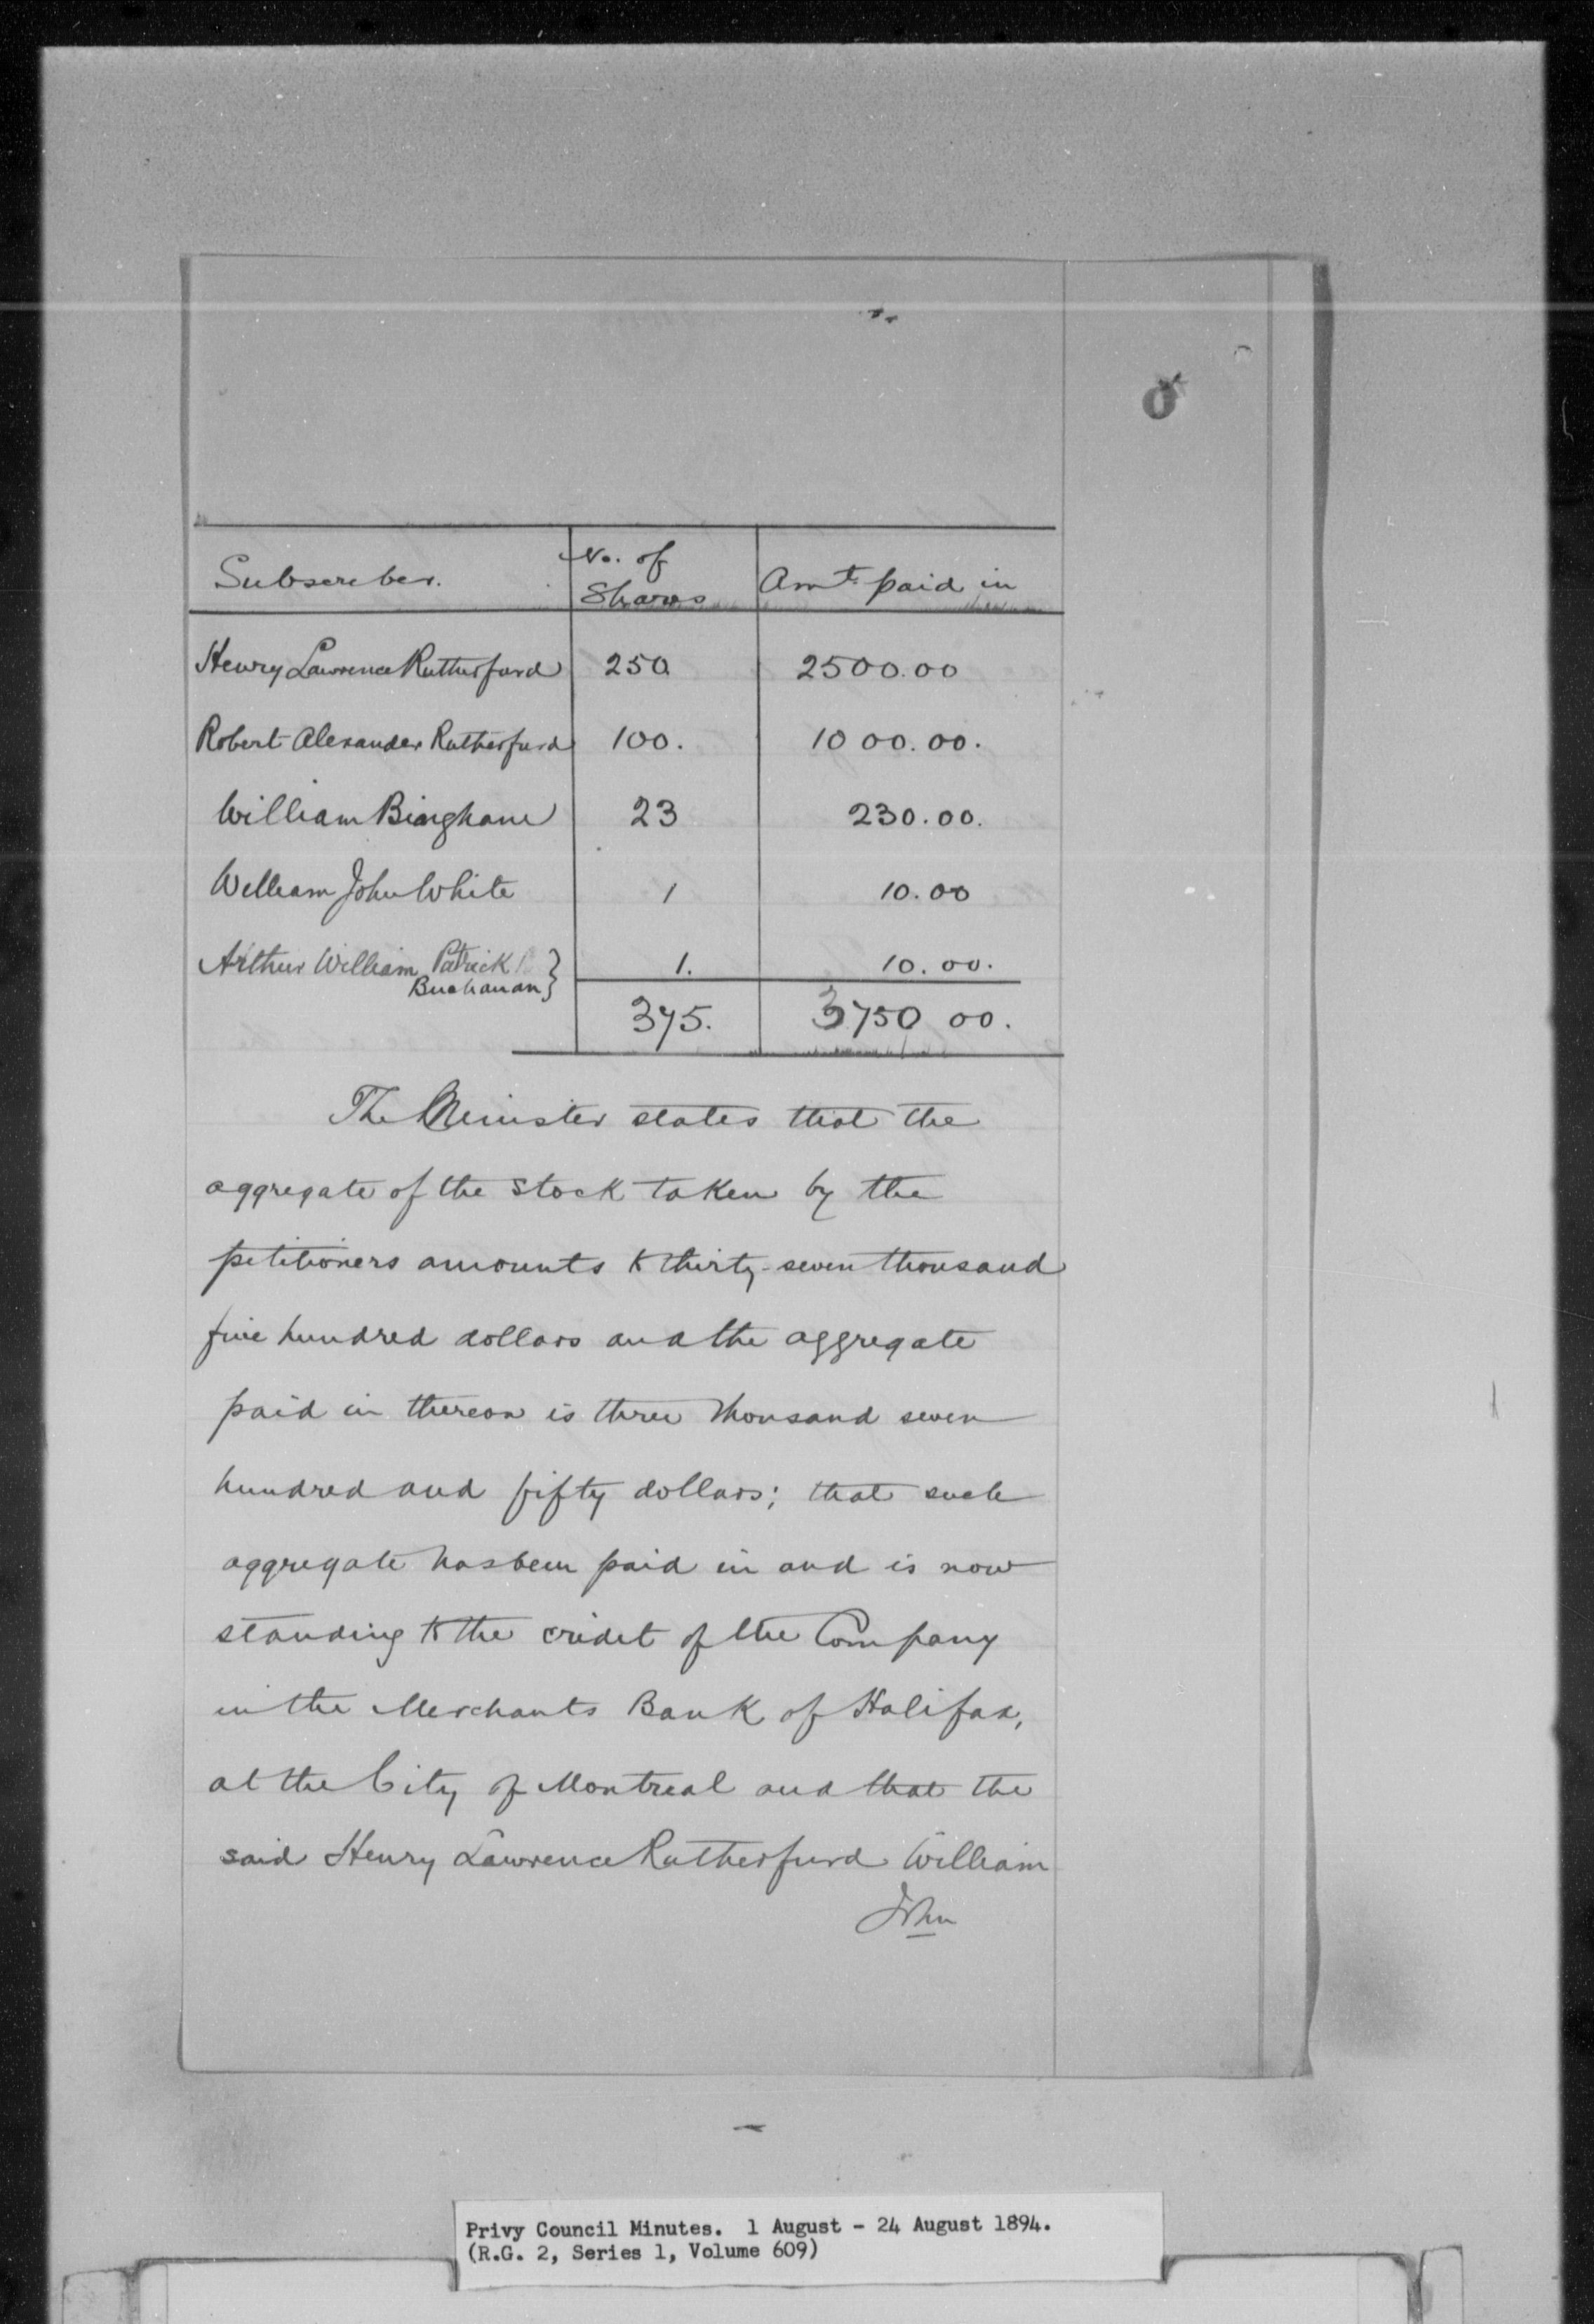 Subscriber. No. of Shares Amt. paid in
Henry Lawrence Rutherfurd 250 2500.00
Robert Alexander Rutherfurd 100. 1000.00.
William Bingham 23 230.00.
William John White 1 10.00
Arthur William Patrick } 1. 10.00.
Buchanan }
375. 3750 00.
The Minister states that the
aggregate of the stock taken by the
petitioners amounts to thirty-seven thousand
five hundred dollars and the aggregate
paid in thereon is three thousand seven
hundred and fifty dollars; that such
aggregate has been paid in and is now
standing to the credit of the Company
in the Merchants Bank of Halifax,
at the City of Montreal and that the
said Henry Lawrence Rutherfurd William
John
Privy Council Minutes. 1 August - 24 August 1894.
(R.G. 2, Series 1, Volume 609)